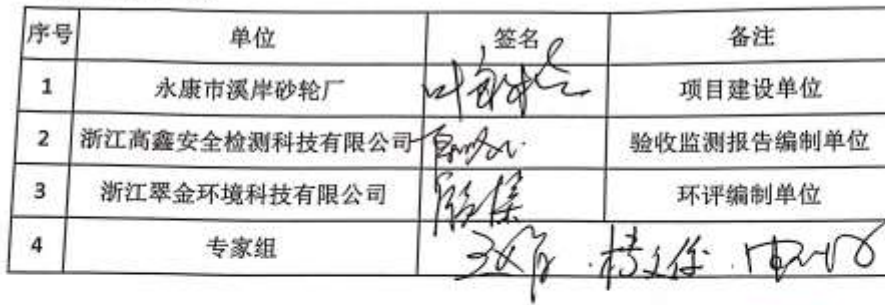 序号 单位 签名 备注
1 永康市溪岸砂轮厂 项目建设单位
2 浙江高鑫安全检测科技有限公司 验收监测报告编制单位
3 浙江翠金环境科技有限公司 环评编制单位
4 专家组